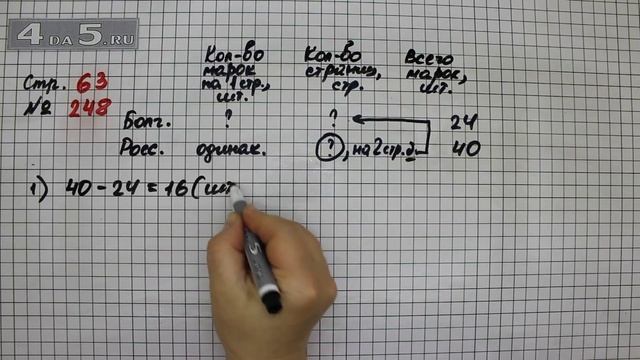 4DA5.RU
Стр. 63
№ 248
Кол-во марок на 1 стр., шт.
Кол-во страниц, стр.
Всего марок, шт.
Болг. ? ? 24
Росс. одинак. ?, на 2 стр. б 40
1) 40 - 24 = 16 (шт